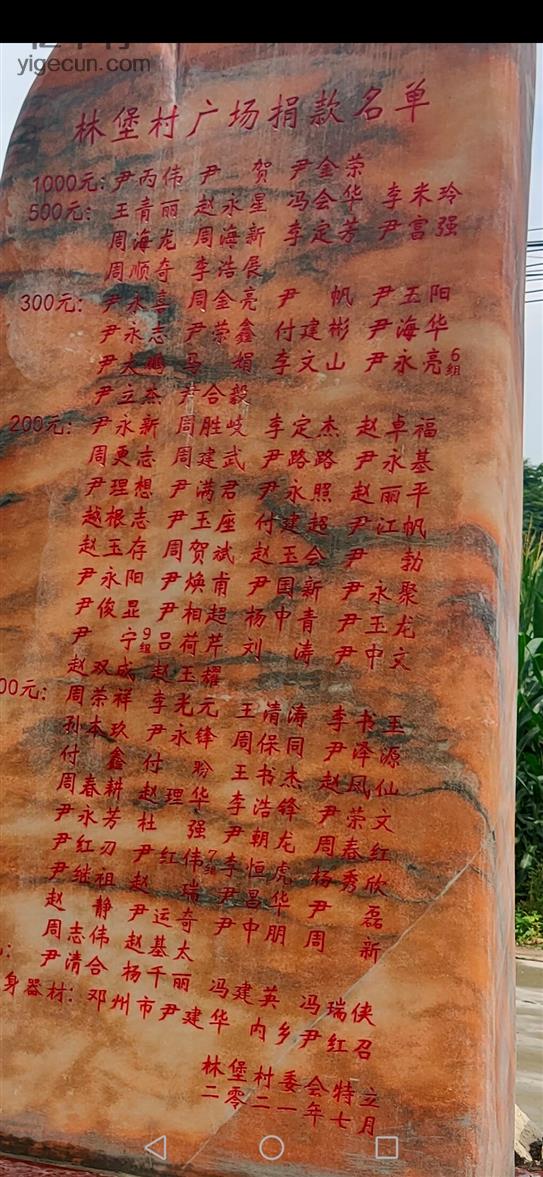 yigecun.com
林堡村广场捐款名单
1000元: 尹丙伟 尹 贺 尹金荣
500元: 王青丽 赵永星 冯会华 李米玲
周海龙 周海新 李定芳 尹富强
周顺奇 李浩展
300元: 尹永喜 周金亮 尹 帆 尹玉阳
尹永志 尹荣鑫 付建彬 尹海华
尹大鹏 马 娟 李文山 尹永亮6组
尹立杰 尹合毅
200元: 尹永新 周胜岐 李定杰 赵卓福
周更志 周建武 尹路路 尹永基
尹理想 尹满君 尹永照 赵丽平
越根志 尹玉座 付建超 尹江帆
赵玉存 周贺斌 赵玉会 尹 勃
尹永阳 尹焕甫 尹国新 尹永聚
尹俊显 尹相超 杨中青 尹玉龙
尹 宁9组 吕荷芹 刘 涛 尹中文
赵双成 赵玉耀
00元: 周荣祥 李光元 王清涛 李书王
孙本玖 尹永锋 周保同 尹泽源
付 鑫 付 盼 王书杰 赵凤仙
周春耕 赵理华 李浩锋 尹荣文
尹永芳 杜 强 尹朝龙 周春红
尹红刃 尹红伟7组 李恒虎 杨秀欣
尹继祖 赵 瑞 尹昌华 尹 磊
赵 静 尹运奇 尹中朋 周 新
周志伟 赵基太
尹清合 杨千丽 冯建英 冯瑞侠
身器材: 邓州市尹建华 内乡尹红召
林堡村委会特立
二零二一年七月